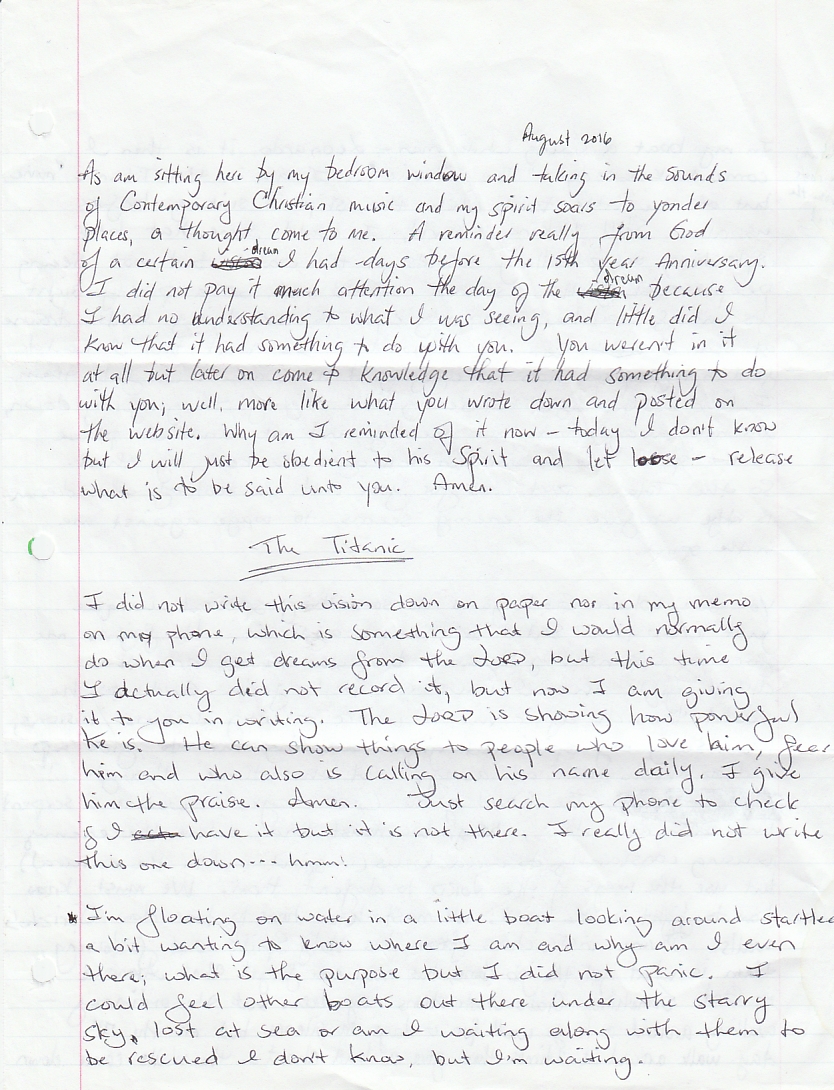 August 2016
As am sitting here by my bedroom window and taking in the sounds
of Contemporary Christian music and my spirit soars to yonder
places, a thought come to me. A reminder really from God
of a certain dream I had -days before the 15th year Anniversary.
I did not pay it much attention the day of the dream because
I had no understanding to what I was seeing, and little did I
know that it had something to do with you. You weren't in it
at all but later on come to knowledge that it had something to do
with you; well, more like what you wrote down and posted on
the website. Why am I reminded of it now - today I don't know
but I will just be obedient to his Spirit and let loose - release
what is to be said unto you. Amen.
The Titanic
I did not write this vision down on paper nor in my memo
on my phone, which is something that I would normally
do when I get dreams from the LORD, but this time
I actually did not record it, but now I am giving
it to you in writing. The LORD is showing how powerful
He is. He can show things to people who love him, fear
him and who also is calling on his name daily. I give
him the praise. Amen. Just search my phone to check
if I have it but it is not there. I really did not write
this one down--- hmm!
* I'm floating on water in a little boat looking around startled
a bit wanting to know where I am and why am I even
there; what is the purpose but I did not panic. I
could feel other boats out there under the starry
sky, lost at sea or am I waiting along with them to
be rescued I don't know, but I'm waiting.